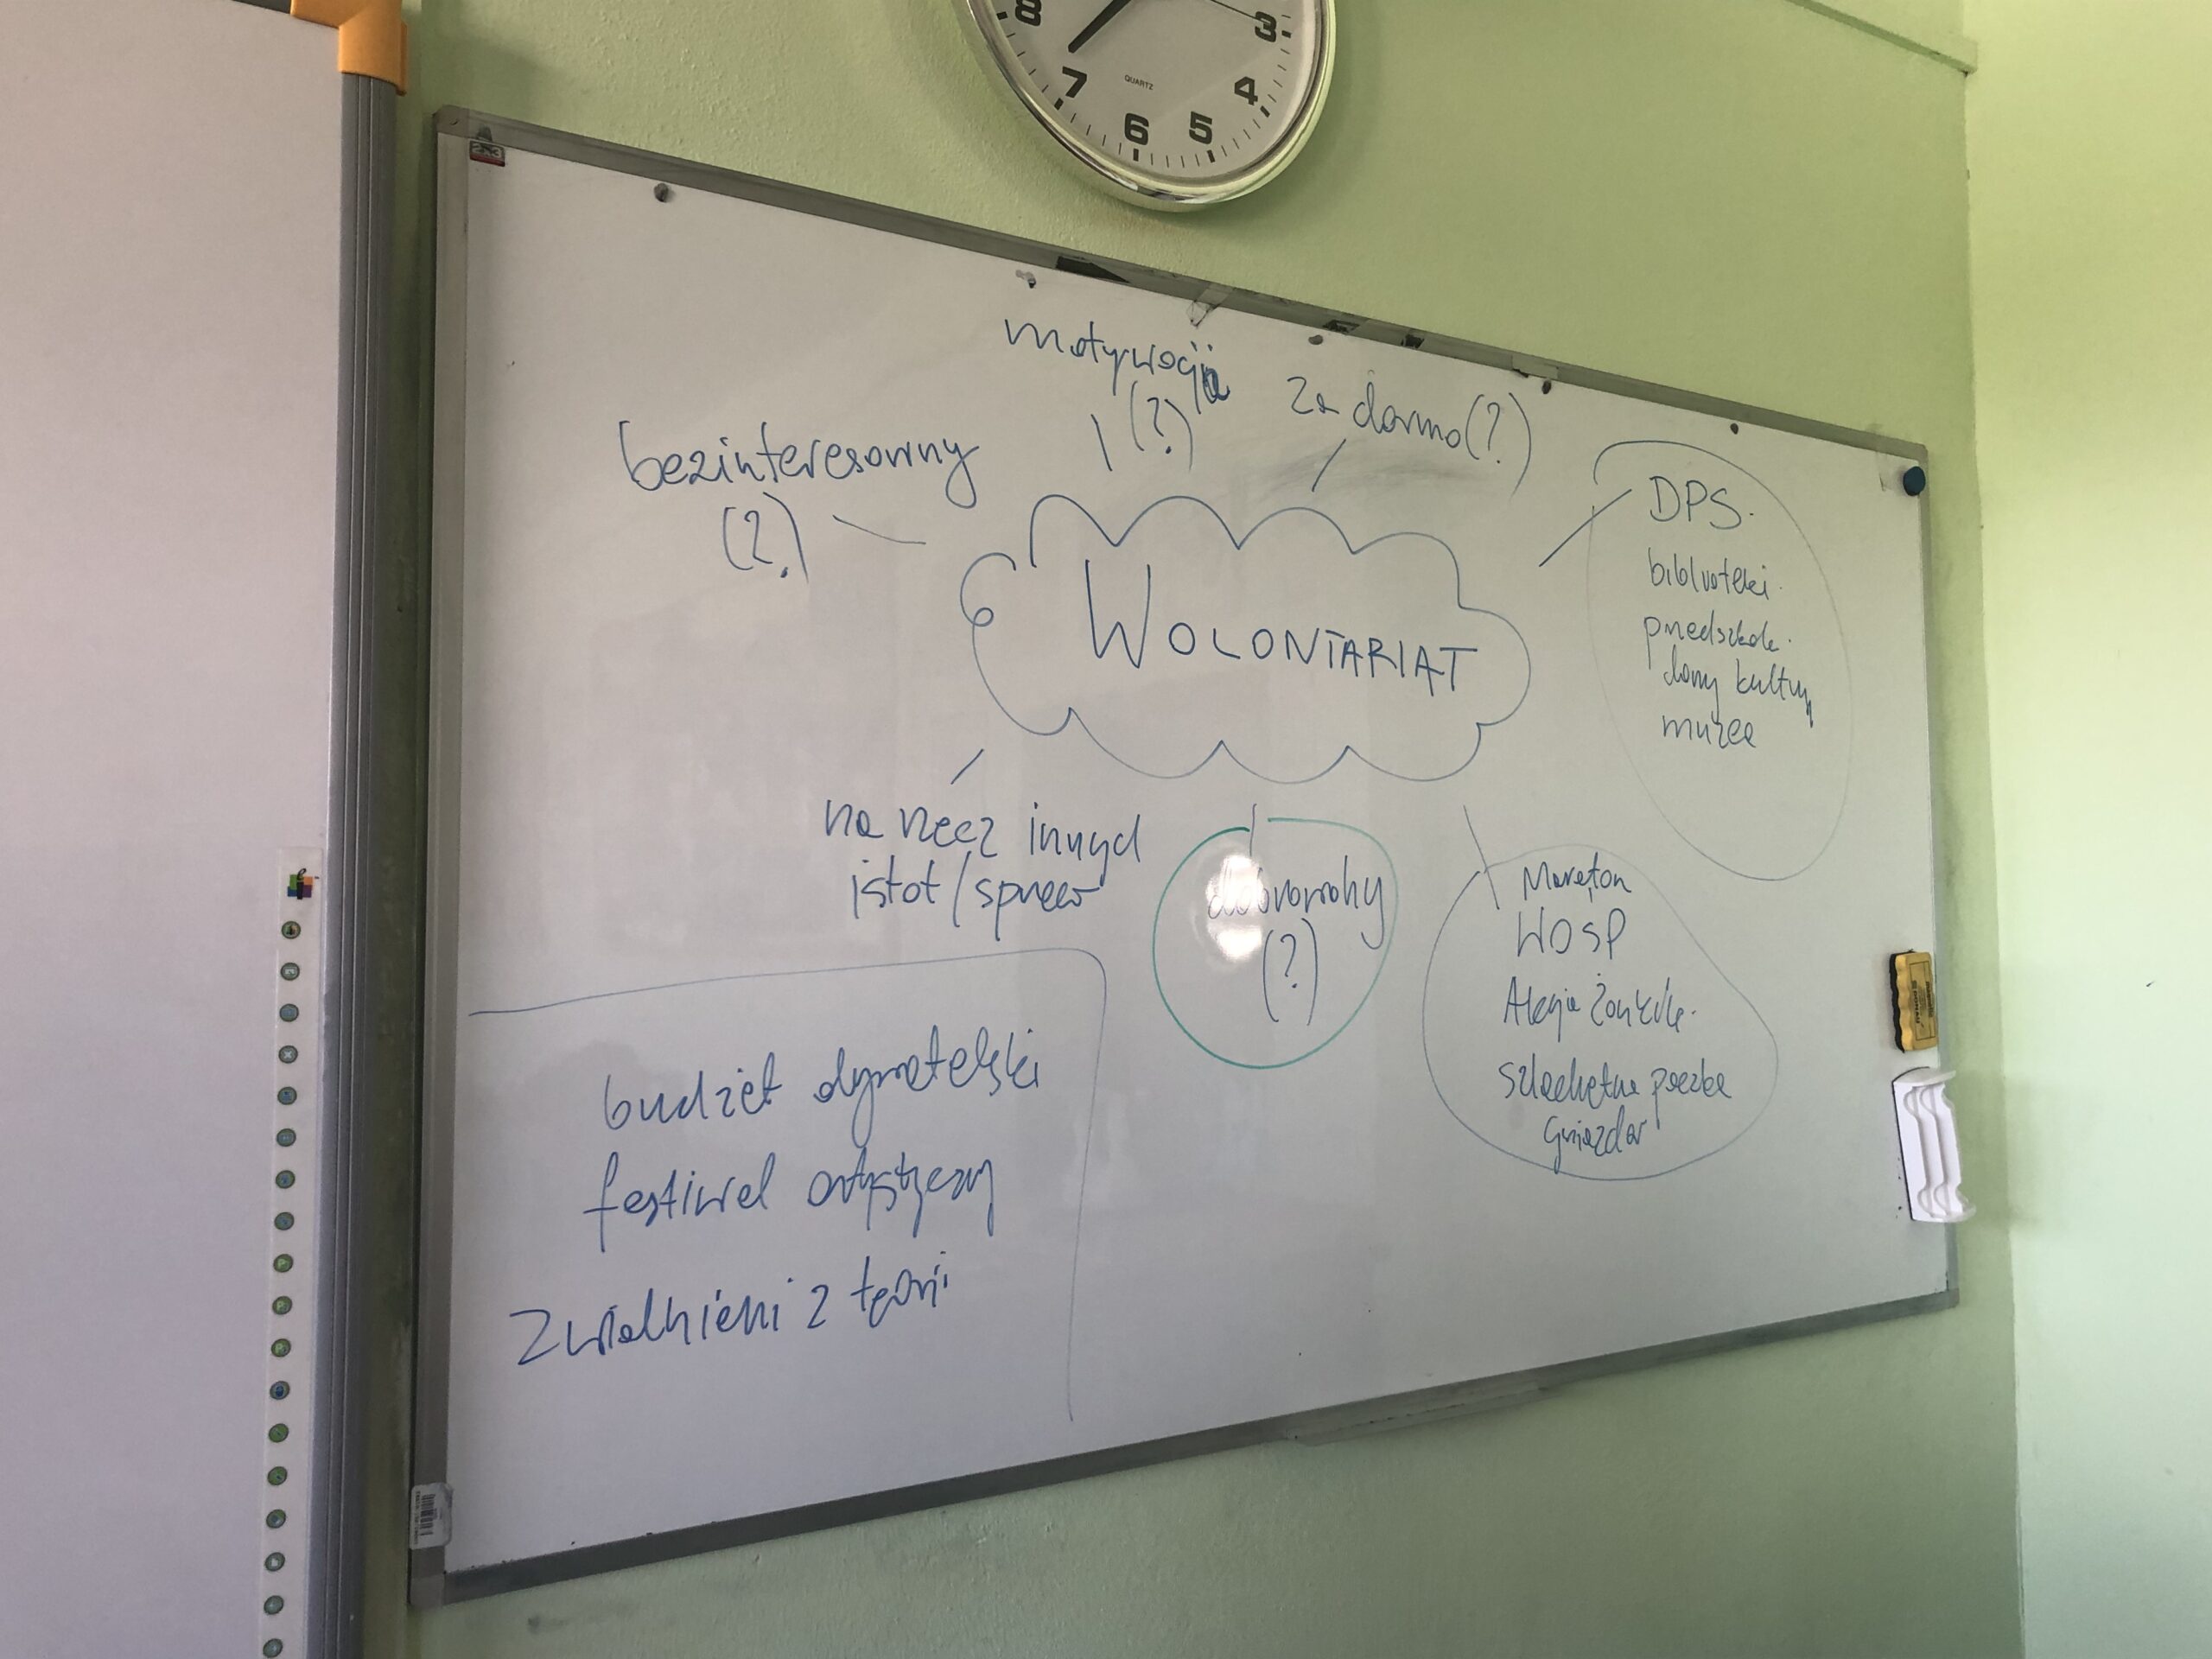 8
7
6
5
4
3
QUARTZ
2x3
motywacja
(?)
za darmo (?)
bezinteresowny
(?)
DPS.
biblioteki.
przedszkola.
domy kultury
muzea
WOLONTARIAT
na rzecz innych
istot/spraw
dobrowolny
(?)
Maraton
WOŚP
Akcja Żonkile.
Szlachetna paczka
Gwiazdor
budżet obywatelski
festiwal artystyczny
Zwolnieni z teorii